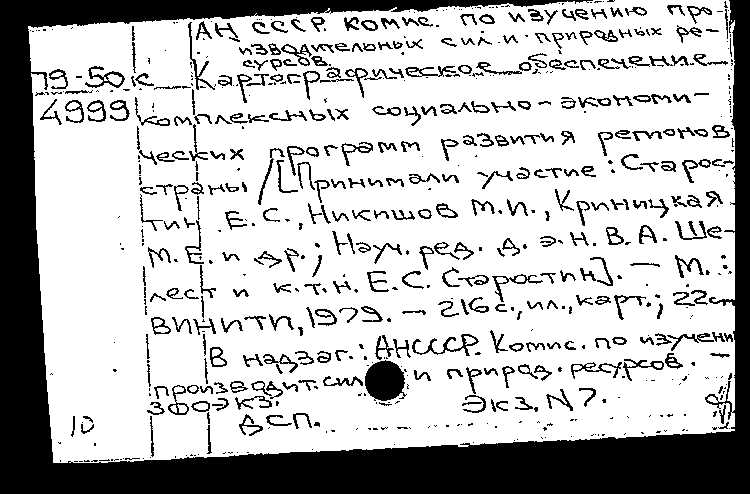 АН СССР. Комис. по изучению про-
изводительных сил и природных ре-
сурсов.
79-50к Картографическое обеспечение
4999 комплексных социально-экономи-
ческих программ развития регионов
страны / [Принимали участие: Старос-
тин Е.С., Никишов М.И., Криницкая
М.Е. и др.; Науч. ред. д.э.н. В.А. Ше-
лест и к.т.н. Е.С. Старостин]. — М.:
ВИНИТИ, 1979. — 216с., ил., карт.; 22см
В надзаг.: АНСССР. Комис. по изучени
производит. сил и природ. ресурсов. —
300экз. Экз. N 7.
10 ДСП.